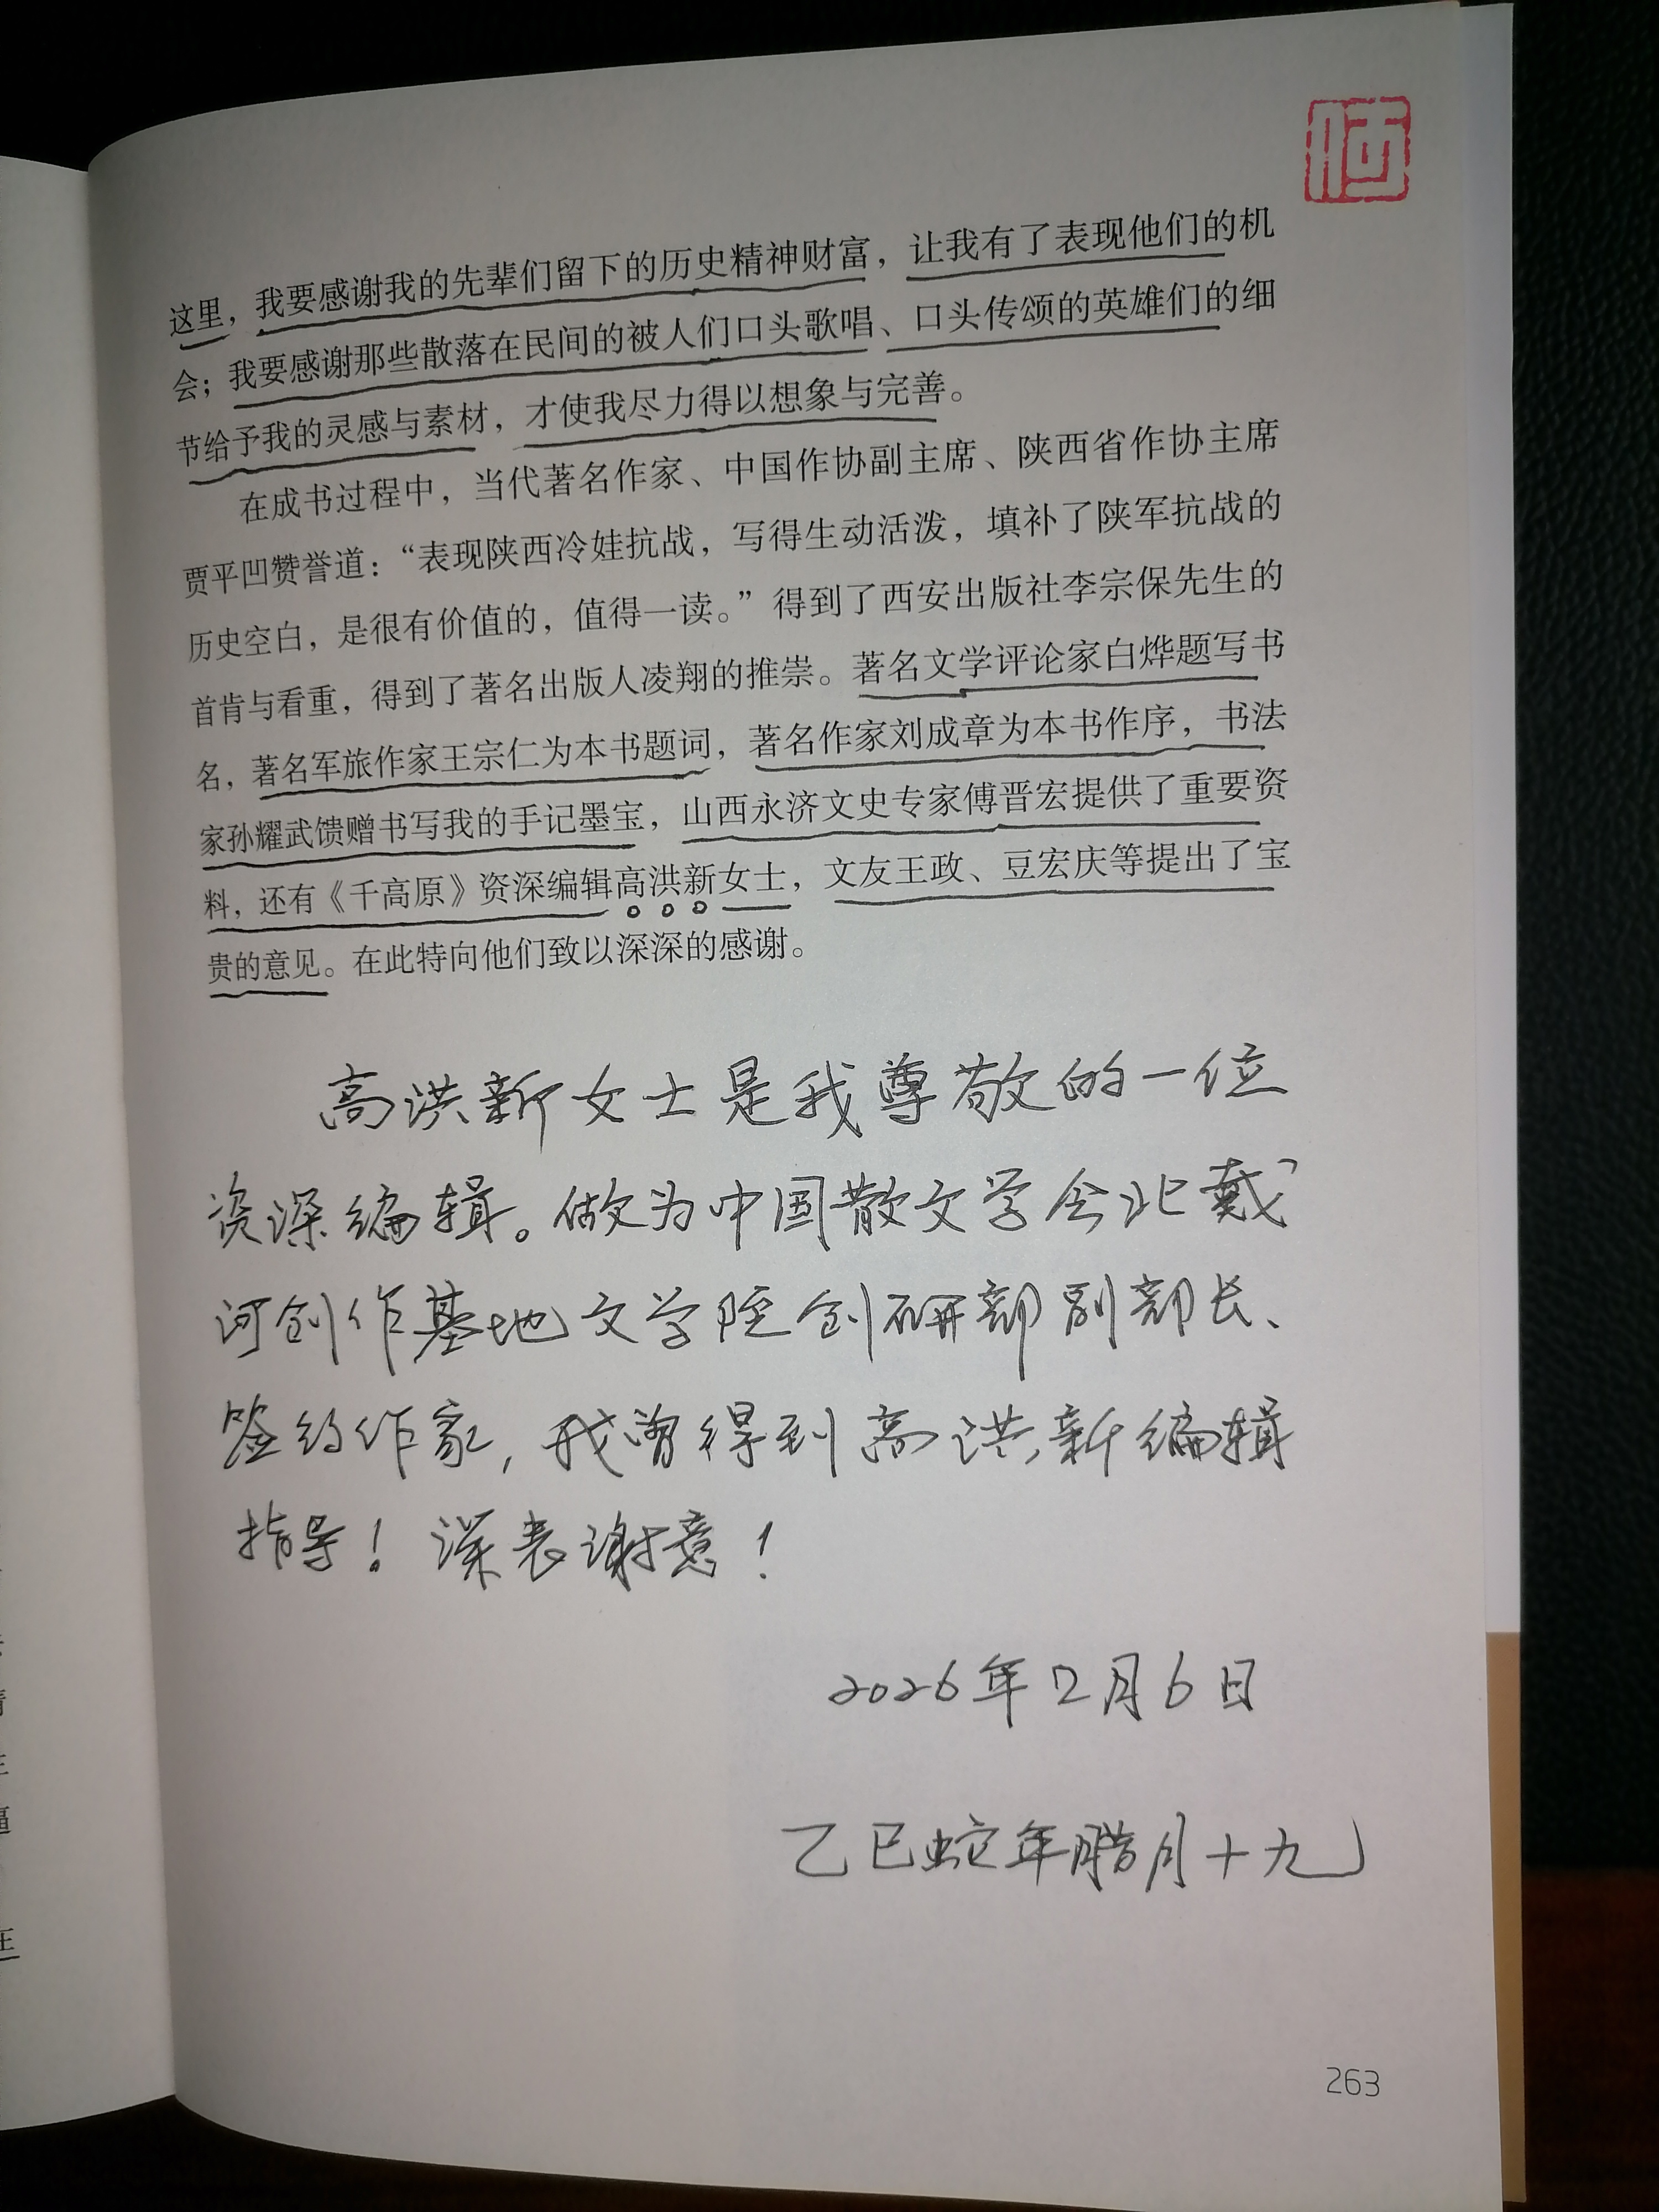 这里，我要感谢我的先辈们留下的历史精神财富，让我有了表现他们的机
会；我要感谢那些散落在民间的被人们口头歌唱、口头传颂的英雄们的细
节给予我的灵感与素材，才使我尽力得以想象与完善。
在成书过程中，当代著名作家、中国作协副主席、陕西省作协主席
贾平凹赞誉道：“表现陕西冷娃抗战，写得生动活泼，填补了陕军抗战的
历史空白，是很有价值的，值得一读。”得到了西安出版社李宗保先生的
首肯与看重，得到了著名出版人凌翔的推崇。著名文学评论家白烨题写书
名，著名军旅作家王宗仁为本书题词，著名作家刘成章为本书作序，书法
家孙耀武馈赠书写我的手记墨宝，山西永济文史专家傅晋宏提供了重要资
料，还有《千高原》资深编辑高洪新女士，文友王政、豆宏庆等提出了宝
贵的意见。在此特向他们致以深深的感谢。
高洪新女士是我尊敬的一位
资深编辑。做为中国散文学会北戴
河创作基地文学院创研部副部长、
签约作家，我曾得到高洪新编辑
指导！深表谢意！
2026年2月6日
乙巳蛇年腊月十九
263